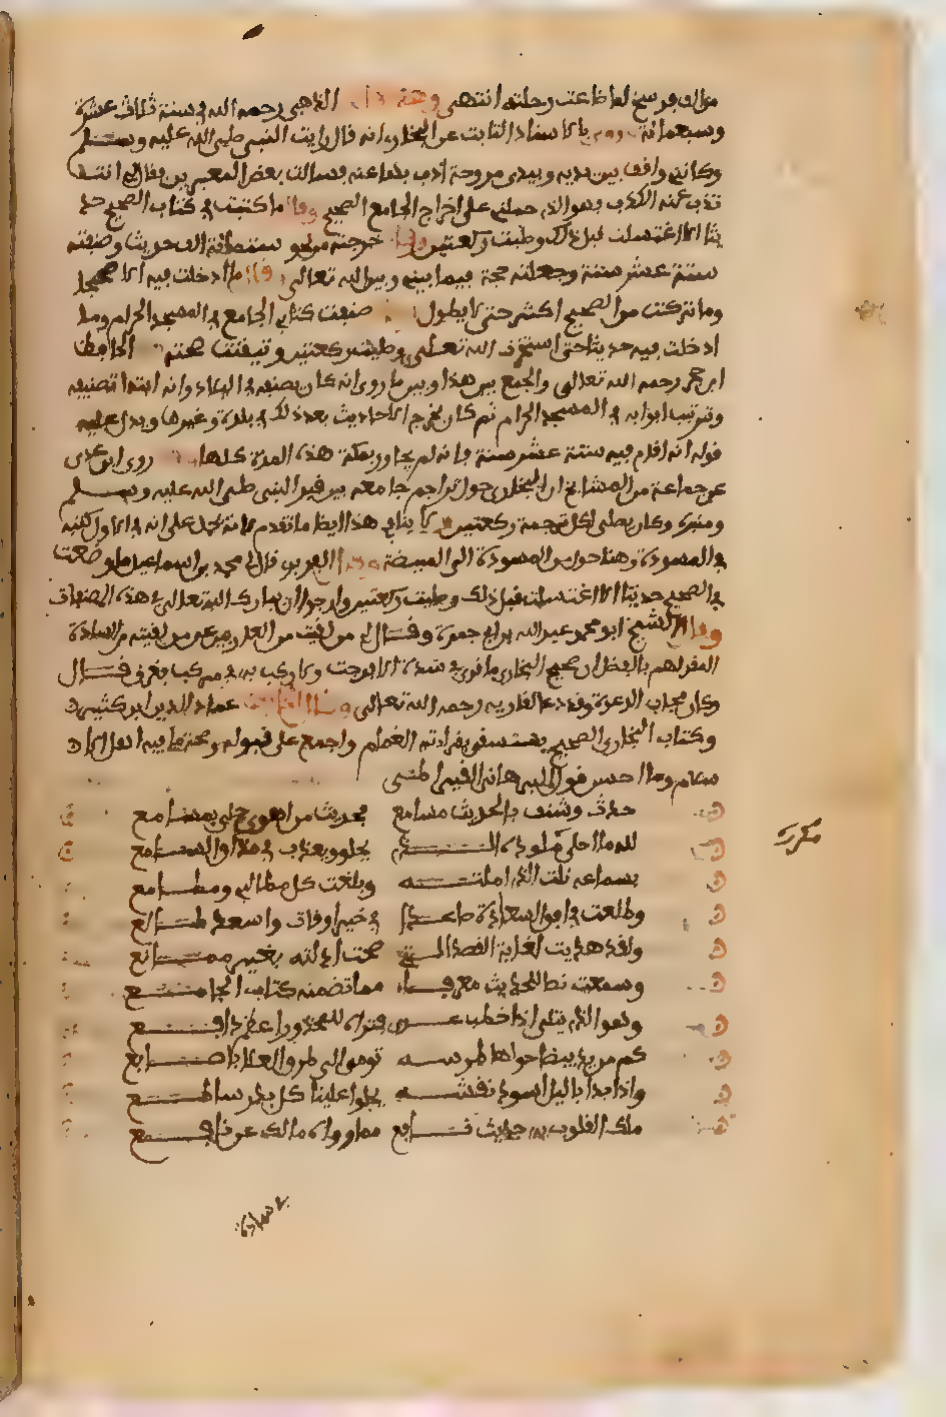 من الف فرسخ لما ضاعت رحلته انتهى وهذا قال الذهبي رحمه الله في سنة ثلاث عشرة
وسبعمائة وروي بالاسناد الثابت عن البخاري انه قال رايت النبي صلى الله عليه وسلم
وكانني واقف بين يديه وبيدي مروحة اذب بها عنه فسالت بعض المعبرين فقال لي انت
تذب عنه الكذب فهو الذي حملني على اخراج الجامع الصحيح وقال ما كتبت في كتاب الصحيح حد
يثا الا اغتسلت قبل ذلك وصليت ركعتين وقال خرجته من نحو ستمائة الف حديث وصنفته
ستة عشر سنة وجعلته حجة فيما بيني وبين الله تعالى وقال ما ادخلت فيه الا صحيحا
وما تركت من الصحيح اكثر حتى لا يطول صنفت كتابي الجامع في المسجد الحرام وما
ادخلت فيه حديثا حتى استخرت الله تعالى وصليت ركعتين وتيقنت صحته الحافظ
ابن حجر رحمه الله تعالى والجمع بين هذا وبين ما روي انه كان يصنفه في البلاد وانه ابتدا تصنيفه
وترتيب ابوابه في المسجد الحرام ثم كان يخرج الاحاديث بعد ذلك في بلده وغيرها ويدل عليه
قوله انه اقام فيه ستة عشر سنة فانه لم يجاور بمكة هذه المدة كلها روى ابن عدي
عن جماعة من المشايخ ان البخاري حول تراجم جامعه بين قبر النبي صلى الله عليه وسلم
ومنبره وكان يصلي لكل ترجمة ركعتين ولا ينافي هذا ايضا ما تقدم لانه يحمل على انه في الاول كتبه
في المسودة وهنا حوله من المسودة الى المبيضة وقال الفربري قال لي محمد بن اسماعيل ما وضعت
في الصحيح حديثا الا اغتسلت قبل ذلك وصليت ركعتين وارجوا ان يبارك الله تعالى في هذه المصنفات
وقال الشيخ ابو محمد عبد الله بن ابي جمرة وقال لي من لقيت من العارفين عمن لقيته من السادة
المقر لهم بالفضل ان صحيح البخاري ما قرئ في شدة الا فرجت ولا ركب به في مركب فغرق قال
وكان مجاب الدعوة وقد دعا لقاريه رحمه الله تعالى وقال الحافظ عماد الدين ابن كثير
وكتاب البخاري الصحيح يستسقى بقراءته الغمام واجمع على قبوله وصحة ما فيه اهل الا
سلام وما احسن قول البرهان القيراطي
حدث وشنف بالحديث مسامع بحديث من اهوى حلي مسامع
لله ما احلى مكرره الذي يحلو ويعذب في مذاق السامع
بسماعه نلت الذي املته وبلغت كل مطالبي ومطامع
وطلعت في افق السعادة صاعدا في خير اوقات واسعد طالع
ولقد هديت لغاية القصد التي صحت ادلته بغير ممانع
وسمعت نصا للحديث معرفا مما تضمنه كتاب الجامع
وهو الذي يتلى اذا خطب عرى فتراه للمحذور اعظم دافع
كم من يد بيضا حواها طرسه تومي الى طرق العلا باصابع
واذا بدا بالليل اسود نقشه يجلوا علينا كل بدر ساطع
ملك القلوب به حديث نافع مما رواه مالك عن نافع
مكرره
في سادة